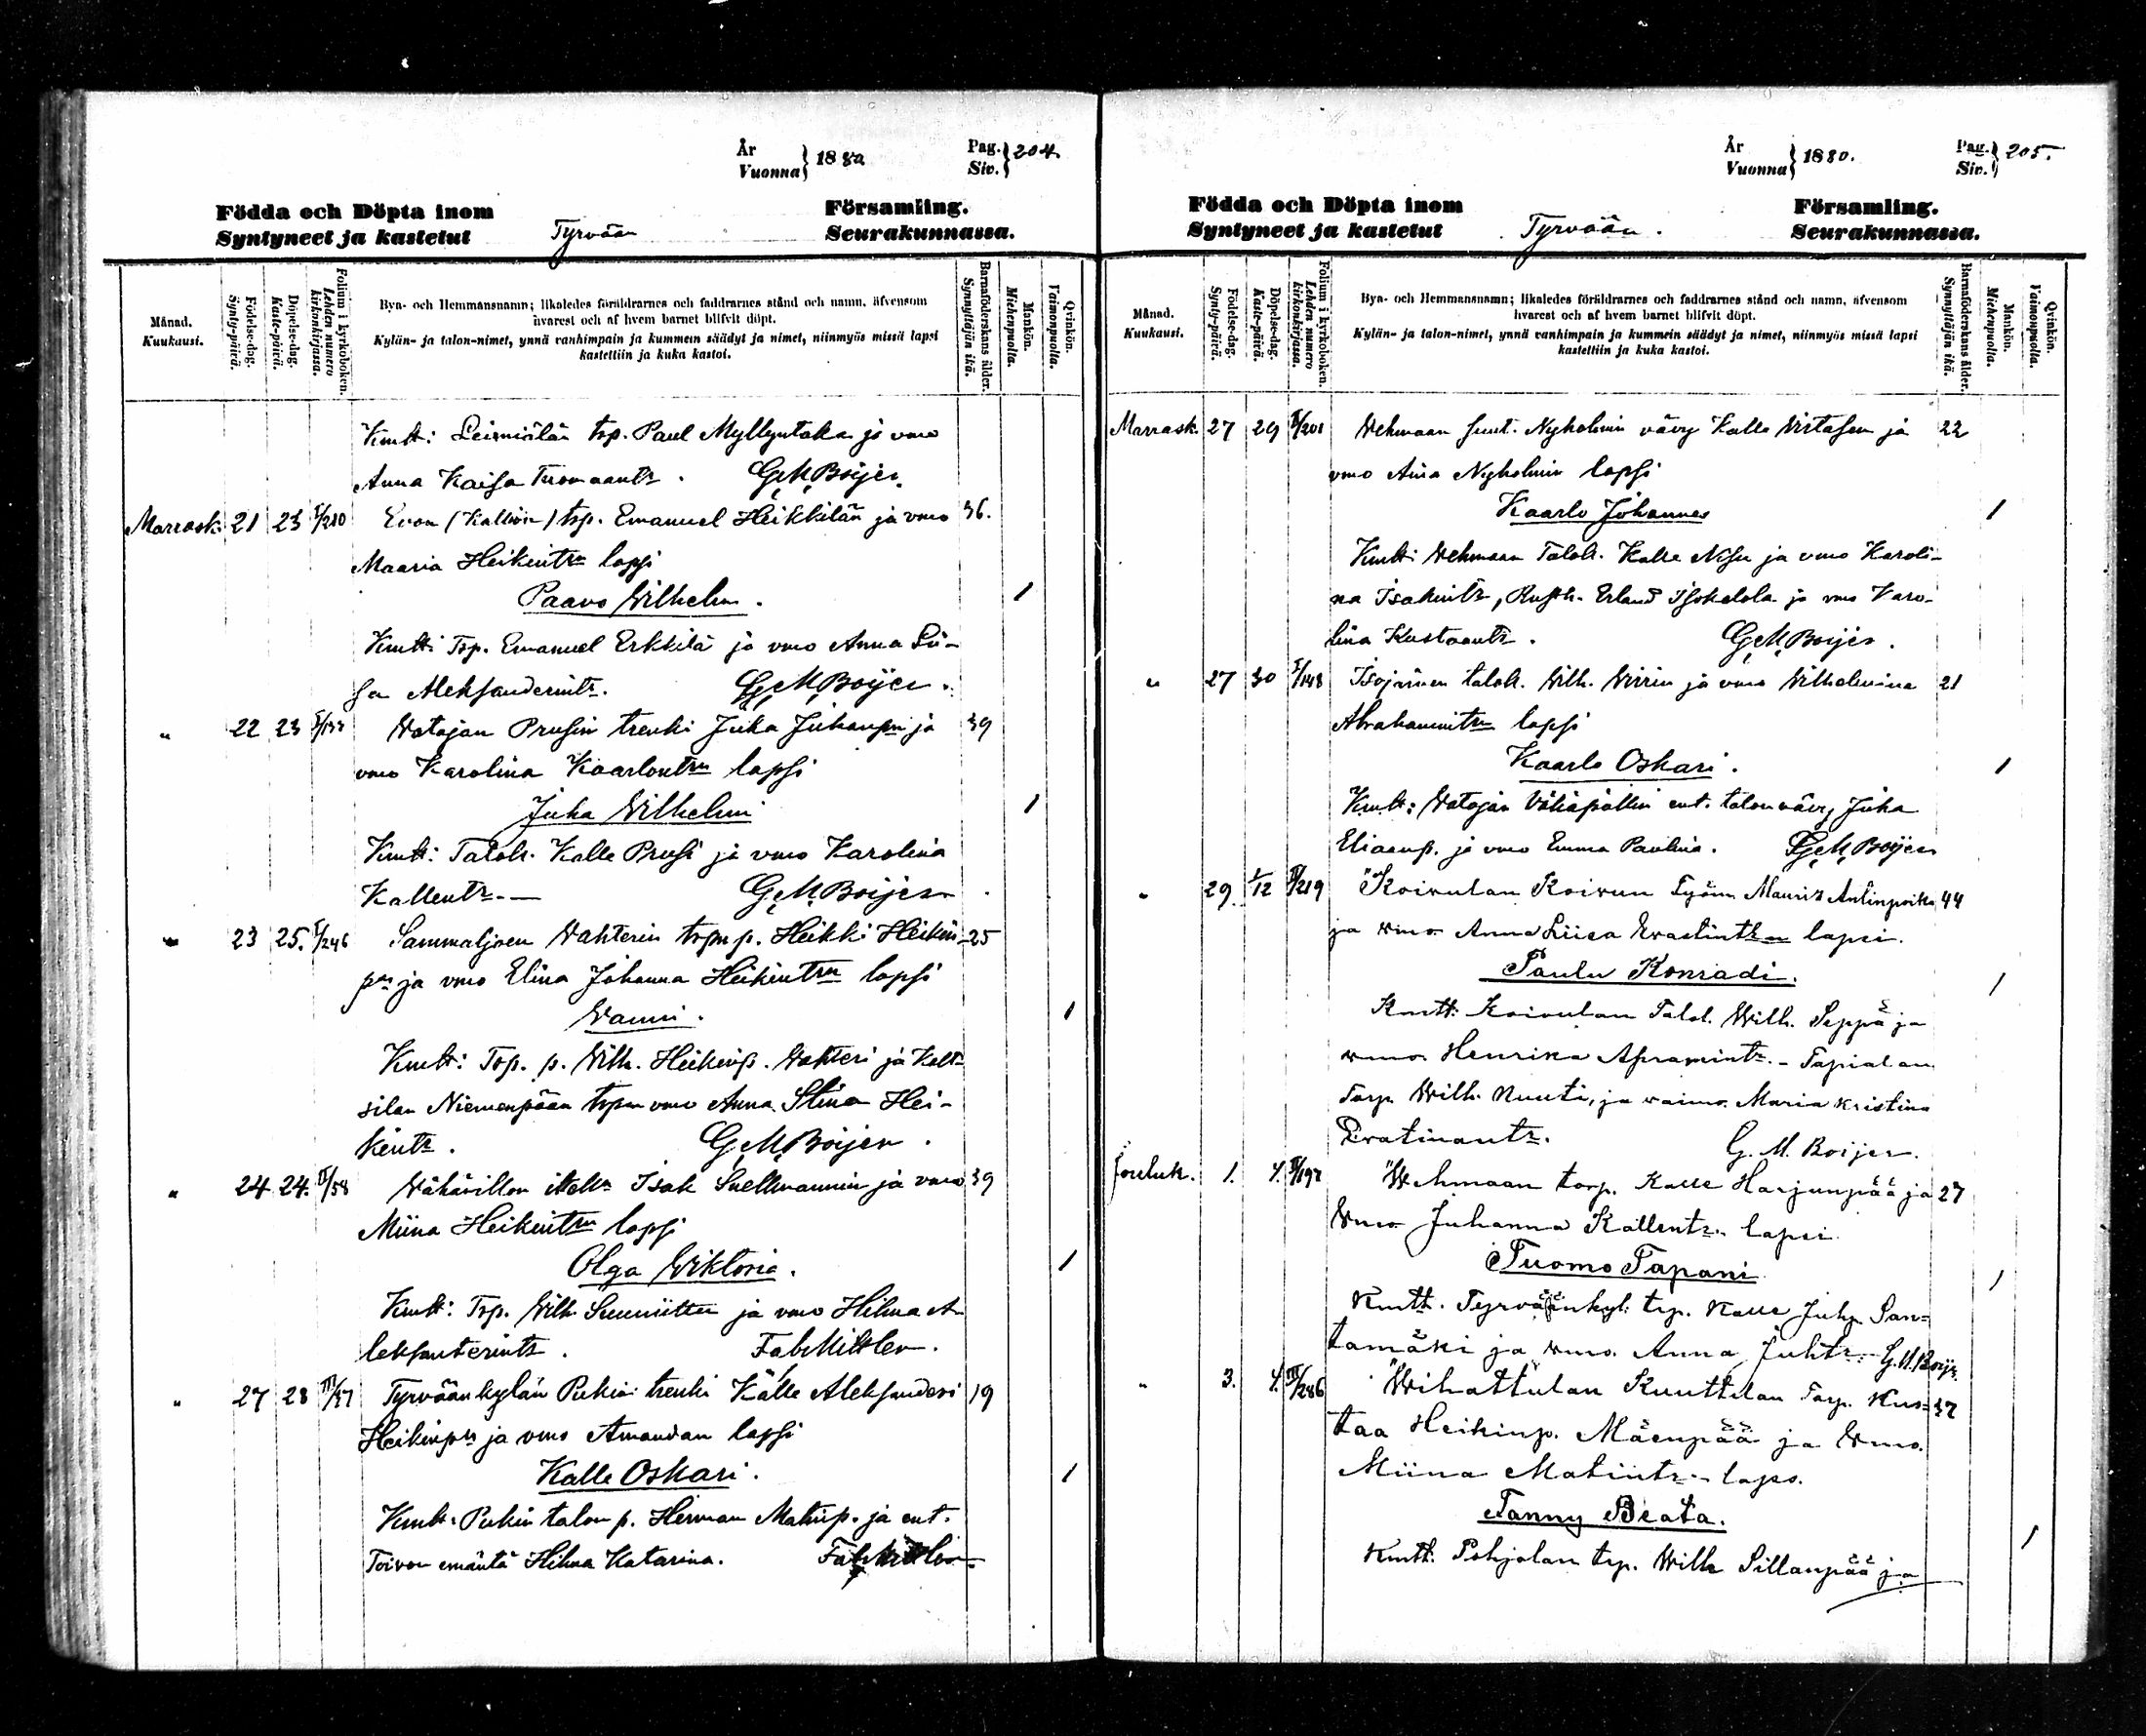 År
Vuonna } 1880
Pag.
Siv. } 204.
Födda och Döpta inom
Syntyneet ja kastetut
Tyrvään
Församling.
Seurakunnassa.
Månad.
Kuukausi.
Födelse-dag.
Synty-päivä.
Döpelse-dag.
Kaste-päivä.
Folium i kyrkoboken.
Lehden numero kirkonkirjassa.
Bya- och Hemmansnamn; likaledes föräldrarnes och faddrarnes stånd och namn, äfvensom
hvarest och af hvem barnet blifvit döpt.
Kylän- ja talon-nimet, ynnä vanhimpain ja kummein säädyt ja nimet, niinmyös missä lapsi
kastettiin ja kuka kastoi.
Barnaföderskans ålder.
Synnyttäjän ikä.
Mankön.
Miehenpuolta.
Qvinkön.
Vaimonpuolta.
Kmtt: trp. Paul Myllyntaka ja vmo
Anna Kaisa Tuomaantr. G. M. Boijer.
Marrask. 21 23 I/210 Evon (Kallion) trp. Emanuel Heikkilän ja vmo 36.
Maaria Heikintrn lapsi
Paavo Wilhelm. 1
Kmtt: Trp. Emanuel Erkkilä ja vmo Anna Lii-
sa Aleksanderintr. G. M. Boijer.
" 22 23 Watajan Prusin trenki Juha Juhanpn ja 39
vmo Karolina Kaarlontrn lapsi
Juha Wilhelmi 1
Kmtt: Taloll. Kalle Prusi ja vmo Karolina
Kallentr. — G. M. Boijer
" 23 25. I/246 Sammaljoen Wahterin trpn p. Heikki Heikin- 25
pn ja vmo Elina Johanna Heikintrn lapsi
Wanni. 1
Kmtt: Trp. p. Wilh. Heikinp. Wahteri ja Kalt-
silan Niemenpään trpn vmo Anna Stina Hei-
kintr. G. M. Boijer.
" 24 24. II/58 Wähävillon Isak Snellmannin ja vmo 39
Miina Heikintrn lapsi
Olga Wiktoria. 1
Kmtt: Trp. Wilh. ja vmo Hilma A-
leksanterintr. Fab. Mittler.
" 27 28 III/37 Tyrväänkylän Pukin trenki Kalle Aleksanderi 19
Heikinpn ja vmo Amandan lapsi
Kalle Oskari. 1
Kmtt: Pukin talon p. Herman Matinp. ja ent.
Toivon emäntä Hilma Katarina. Fab. Mittler
År
Vuonna } 1880.
Pag.
Siv. } 205.
Födda och Döpta inom
Syntyneet ja kastetut
Tyrvään.
Församling.
Seurakunnassa.
Månad.
Kuukausi.
Födelse-dag.
Synty-päivä.
Döpelse-dag.
Kaste-päivä.
Folium i kyrkoboken.
Lehden numero kirkonkirjassa.
Bya- och Hemmansnamn; likaledes föräldrarnes och faddrarnes stånd och namn, äfvensom
hvarest och af hvem barnet blifvit döpt.
Kylän- ja talon-nimet, ynnä vanhimpain ja kummein säädyt ja nimet, niinmyös missä lapsi
kastettiin ja kuka kastoi.
Barnaföderskans ålder.
Synnyttäjän ikä.
Mankön.
Miehenpuolta.
Qvinkön.
Vaimonpuolta.
Marrask. 27 29 II/201 Wehmaan Nyholmin vävy Kalle Wirtasen ja 22
vmo Aina Nyholmin lapsi
Kaarlo Johannes 1
Kmtt: Wehmaan Taloll. Kalle Nisu ja vmo Karoli-
na Isakintr., Rusth. Erland Isokelola ja vmo Karo-
lina Kustaantr. G. M. Boijer.
" 27 30 I/148 Isojärven taloll. Wilh. Wirrin ja vmo Wilhelmina 21
Abrahamintrn lapsi
Kaarlo Oskari. 1
Kmtt: Watajan Vähäpällin ent. talonvävy Juha
Eliaanp. ja vmo Emma Paulina. G. M. Boijer
" 29. 1/12 II/219 Koivulan Koivun Työm. Mauriz Antinpoika 44
ja vmo Anna Liisa Erastintrn lapsi.
Paulu Konradi. 1
Kmtt: Koivulan Talol. Wilh. Seppä ja
vmo Henrika Apramintr. - Tapialan
Torp. Wilh. Nuuti, ja vaimo Maria Kristina
G. M. Boijer.
Jouluk. 1. 4. II/197 Wehmaan torp. Kalle Harjunpää ja 27
vmo Juhanna Kallentr. lapsi
Tuomo Tapani 1
Kmtt. Tyrväänkyl. trp. Kalle Juhp. San-
tamäki ja vmo. Anna Juhtr. G. M. Boijr.
" 3. 4. III/286 Wihattulan Kuuttilan Torp. Kus- 37
taa Heikinp. Mäenpää ja vmo.
Miina Matintr. laps.
Fanny Beata. 1
Kmtt. Pohjolan trp. Wilh Sillanpää ja